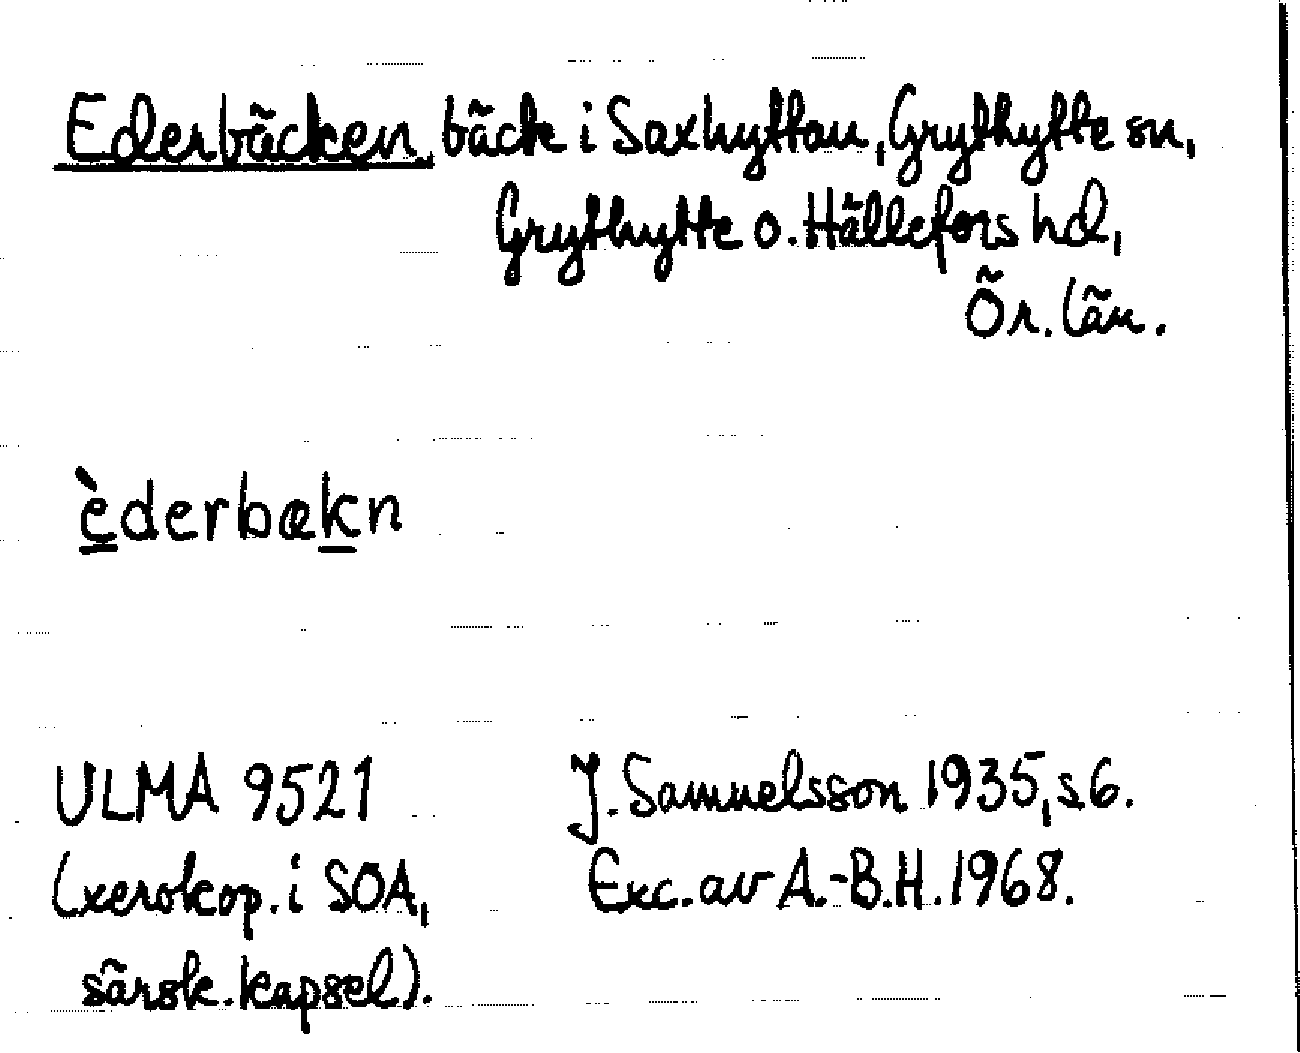 Ederbäcken, bäck i Saxhyttan, Grythytte sn,
Grythytte o. Hällefors hd,
Ör. län.
èderbækn
ULMA 9521
(xerokop. i SOA,
särsk. kapsel).
J. Samuelsson 1935, s. 6.
Exc. av A.-B.H. 1968.